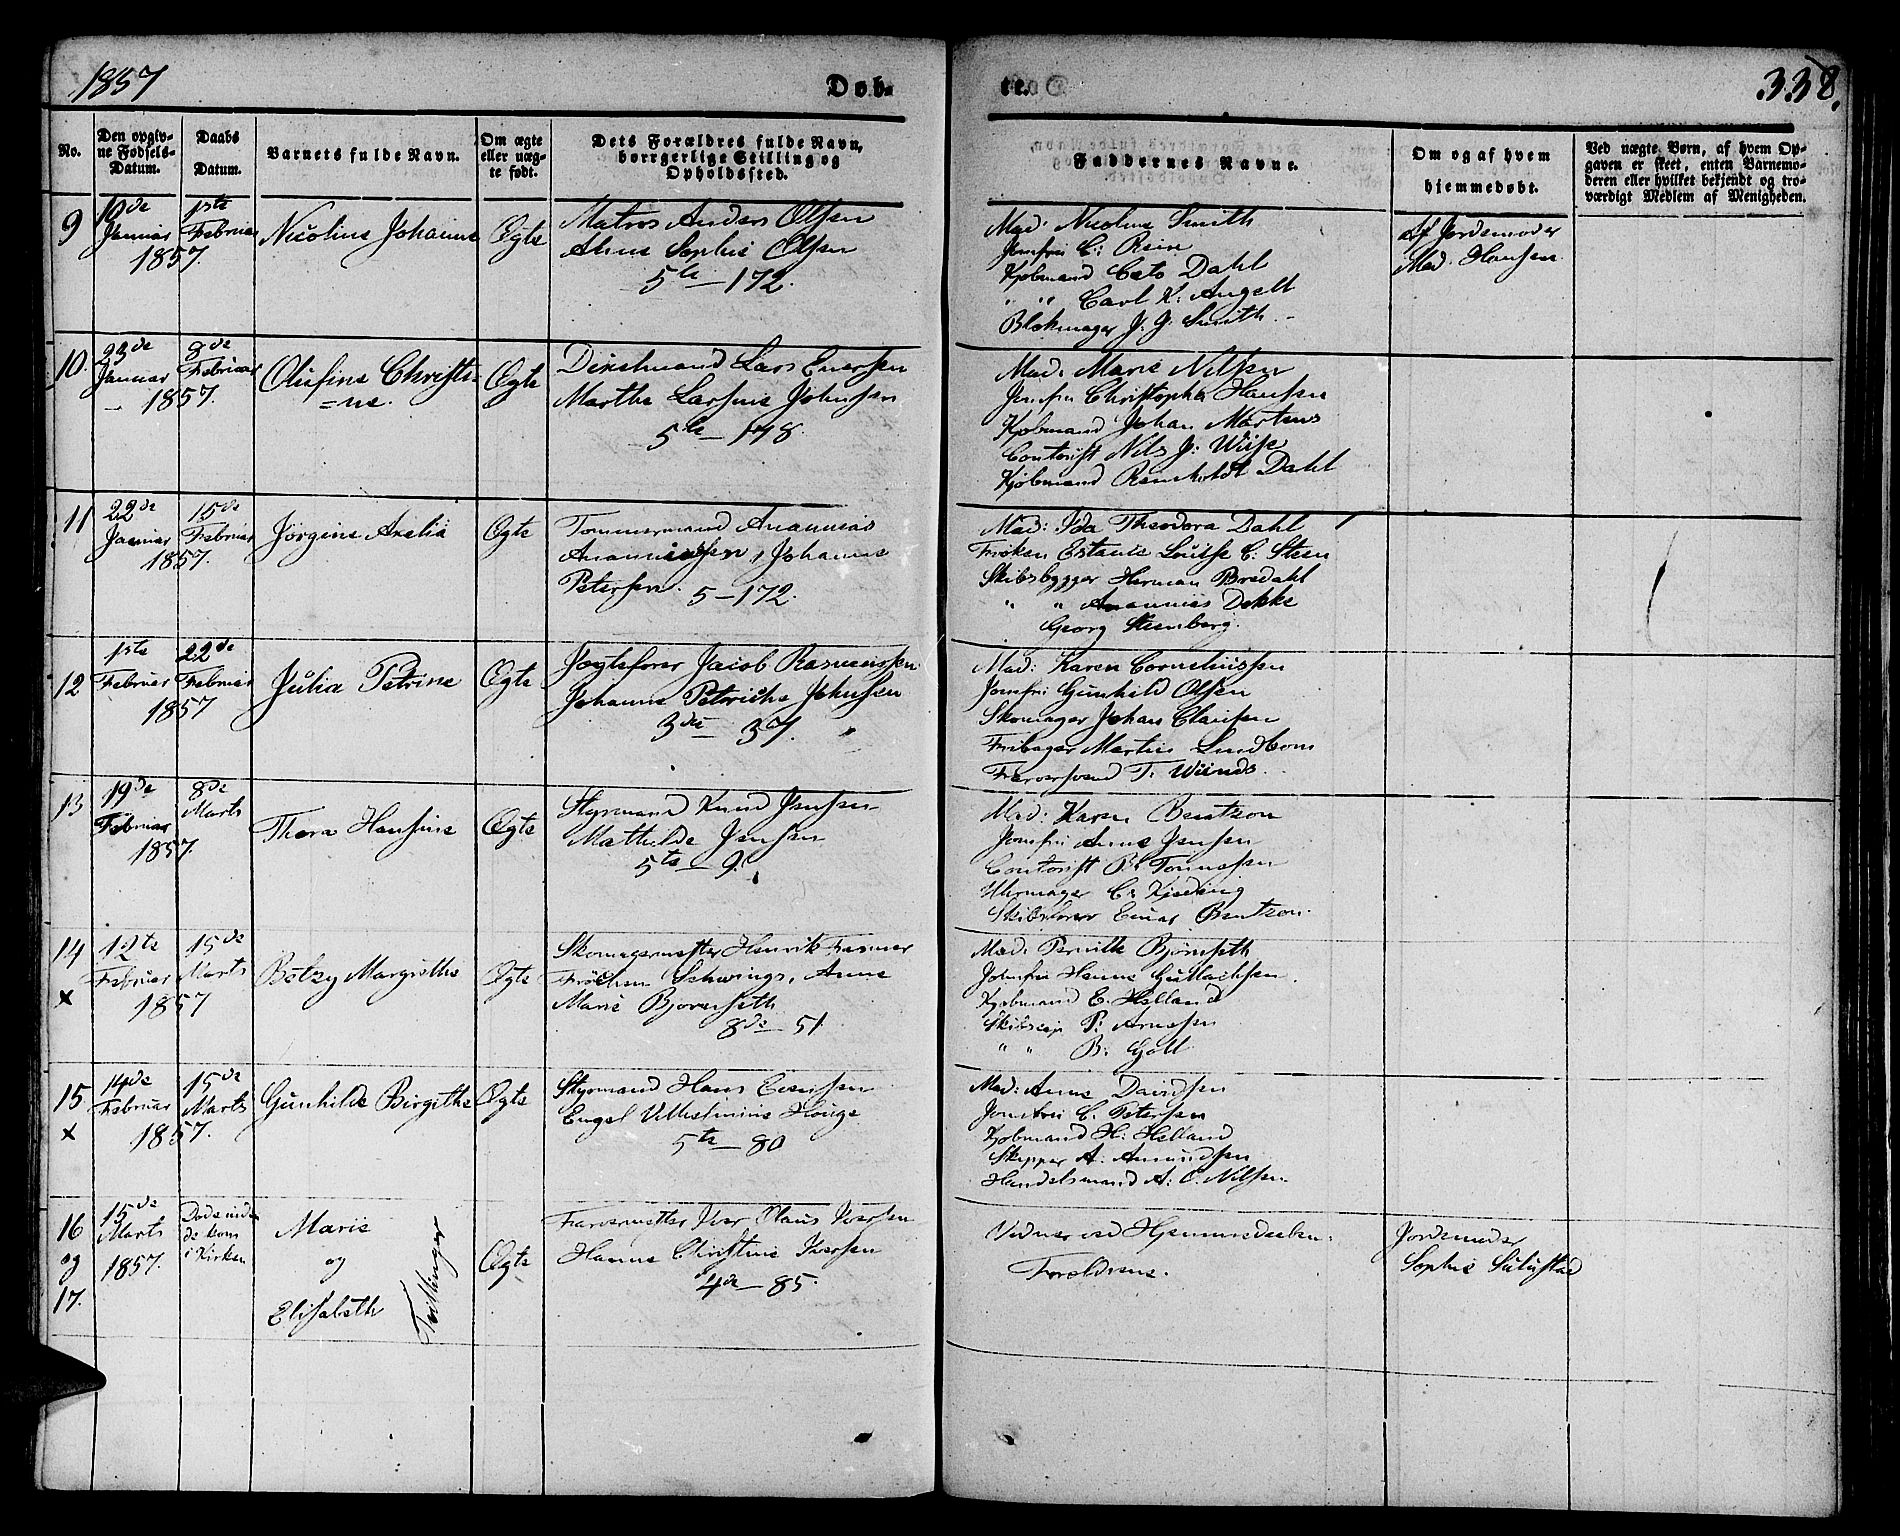 1857
Døb-
te.
338.
No.
Den opgiv-
ne Fødsels-
Datum.
Daabs
Datum.
Varnets fulde Navn.
Om ægte
eller uæg-
te født.
Dets Forældres fulde Navn,
borrgerlige Stilling og
Opholdssted.
Faddernes Navne.
Om og af hvem
hjemmedøbt.
Ved uægte Børn, af hvem Op-
gaven er skeet, enten Barnemo-
deren eller hvilket bekjendt og tro-
værdigt Medlem af Menigheden.
9
10de
Januar
1857.
1ste
Februar
Nicoline Johanne
Ægte
Matros Anders Olsen
Aline Sophie Olsen
5te - 172.
Mad. Nicoline Smith
Jomfru C: Rein
Kjøbmand Cato Dahl
" " Carl K. Angell
Blokmager J. J. Smith.
Af Jordemoder
Mad. Hansen
10.
23de
Januar
1857.
8de
Februar
Olufine Christi-
=ne.
Ægte
Lars Enersen
Marthe Larsine Johnsen
5te - 178.
Mad. Marie Nilsen
Jomfru Christopha Hansen
Kjøbmand Johan Martens
Contorist Nils J: Wiise
Kjøbmand Reinholdt Dahl
11
22de
Januar
1857.
15de
Februar
Jørgine Axelia
Ægte
Tømmermand Ananias
Ananiassen, Johanne
Petersen. 5-172.
Mad: Ida Theodora Dahl
Frøken Estanie Louise C: Steen
Skibsbygger Herman Bredahl
" " Ananias Dekke
Georg Steenberg.
12
1ste
Februar
1857
22de
Februar
Julia Petrine
Ægte
Jægtefører Jacob Rasmussen
Johanne Petricke Johnsen
3die 37.
Mad: Karen Corneliussen
Jomfru Gunhild Olsen
Skomager Johan Clausen
Martin Lindbom
Farversvend T. Wiinds.
13
19de
Februar
1857.
8de
Marts
Thora Hansine
Ægte
Styrmand Knud Jensen
Mathilde Jensen
5te - 9.
Mad: Karen Bentzon
Jomfru Anne Jensen
Contorist B. Tønnesen
Uhrmager C. Kjeding
Skibsfører Einar Bentzon.
14
x
12te
Februar
1857
15de
Marts
Betzy Margrethe
Ægte
Skomagermester Henrik Fasmer
Frøchen Schwings, Anne
Marie Bjørnseth
8de - 51.
Mad. Pernille Bjørnseth
Jomfru Hanne Gullachsen
Kjøbmand E. Helland
P: Arnesen
" " B: Gøll
15
x
14de
Februar
1857.
15de
Marts
Gunhilde Birgithe
Ægte
Styrmand Hans Evensen
Engel Vilhelmine Houge
5te - 80
Mad: Anne Davidsen
Jomfru C. Petersen
Kjøbmand H: Helland
Skipper A. Amundsen
Handelsmand A: C. Nilsen
16
og
17.
15de
Marts
1857.
Døde inden
de kom
i Kirken
Marie
og
Elisabeth
Tvillinger
Ægte
Farvermester Iver Olaus Iversen
Hanne Christine Iversen
4de - 85.
Vidner ved Hjemmedaaben:
Forældrene.
Jordemoder
Sophie Sulustad